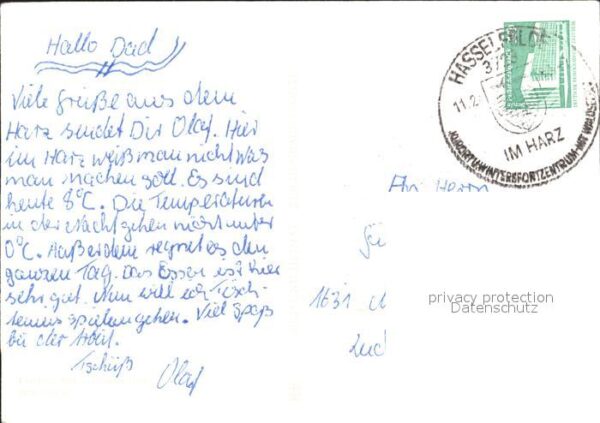 Hallo Dad
Viele Grüße aus dem
Harz sendet Dir Olaf. Hier
im Harz weiß man nicht was
man machen soll. Es sind
heute 8°C. Die Temperaturen
in der Nacht gehen nicht unter
0°C. Außerdem regnet es den
ganzen Tag. Das Essen ist hier
sehr gut. Nun will ich Tisch-
tennis spielen gehen. Viel Spaß
bei der Arbeit.
Tschüß
Olaf
HASSELFELDE
11.2.
IM HARZ
KURORT & WINTERSPORTZENTRUM MIT WALDSEEBAD
An Herrn
1631
privacy protection
Datenschutz